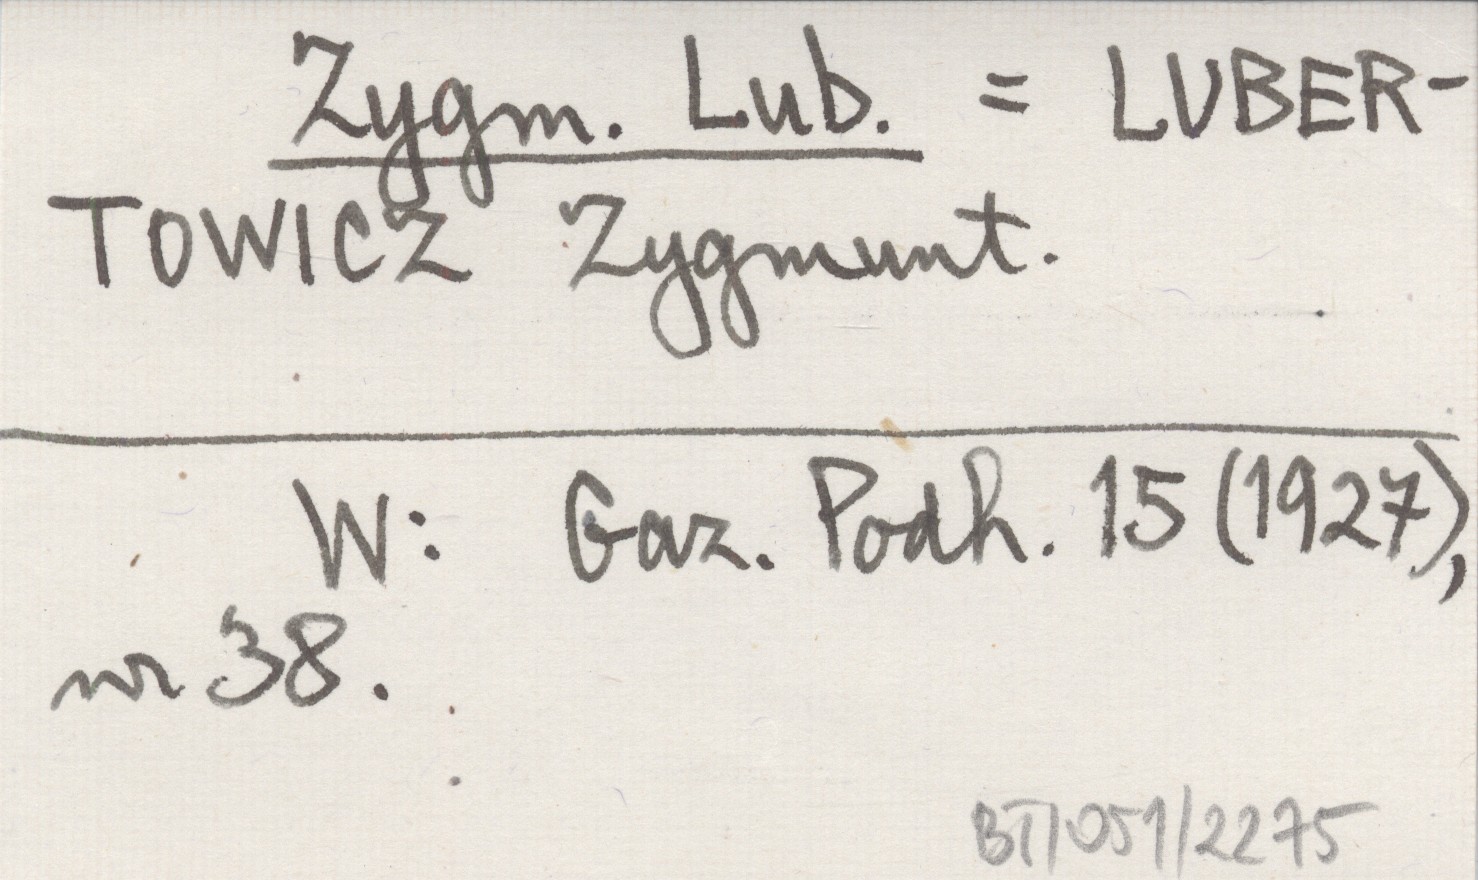 Zygm. Lub. = LUBER-
TOWICZ Zygmunt.
W: Gaz. Podh. 15 (1927),
nr 38.
BT/051/2275